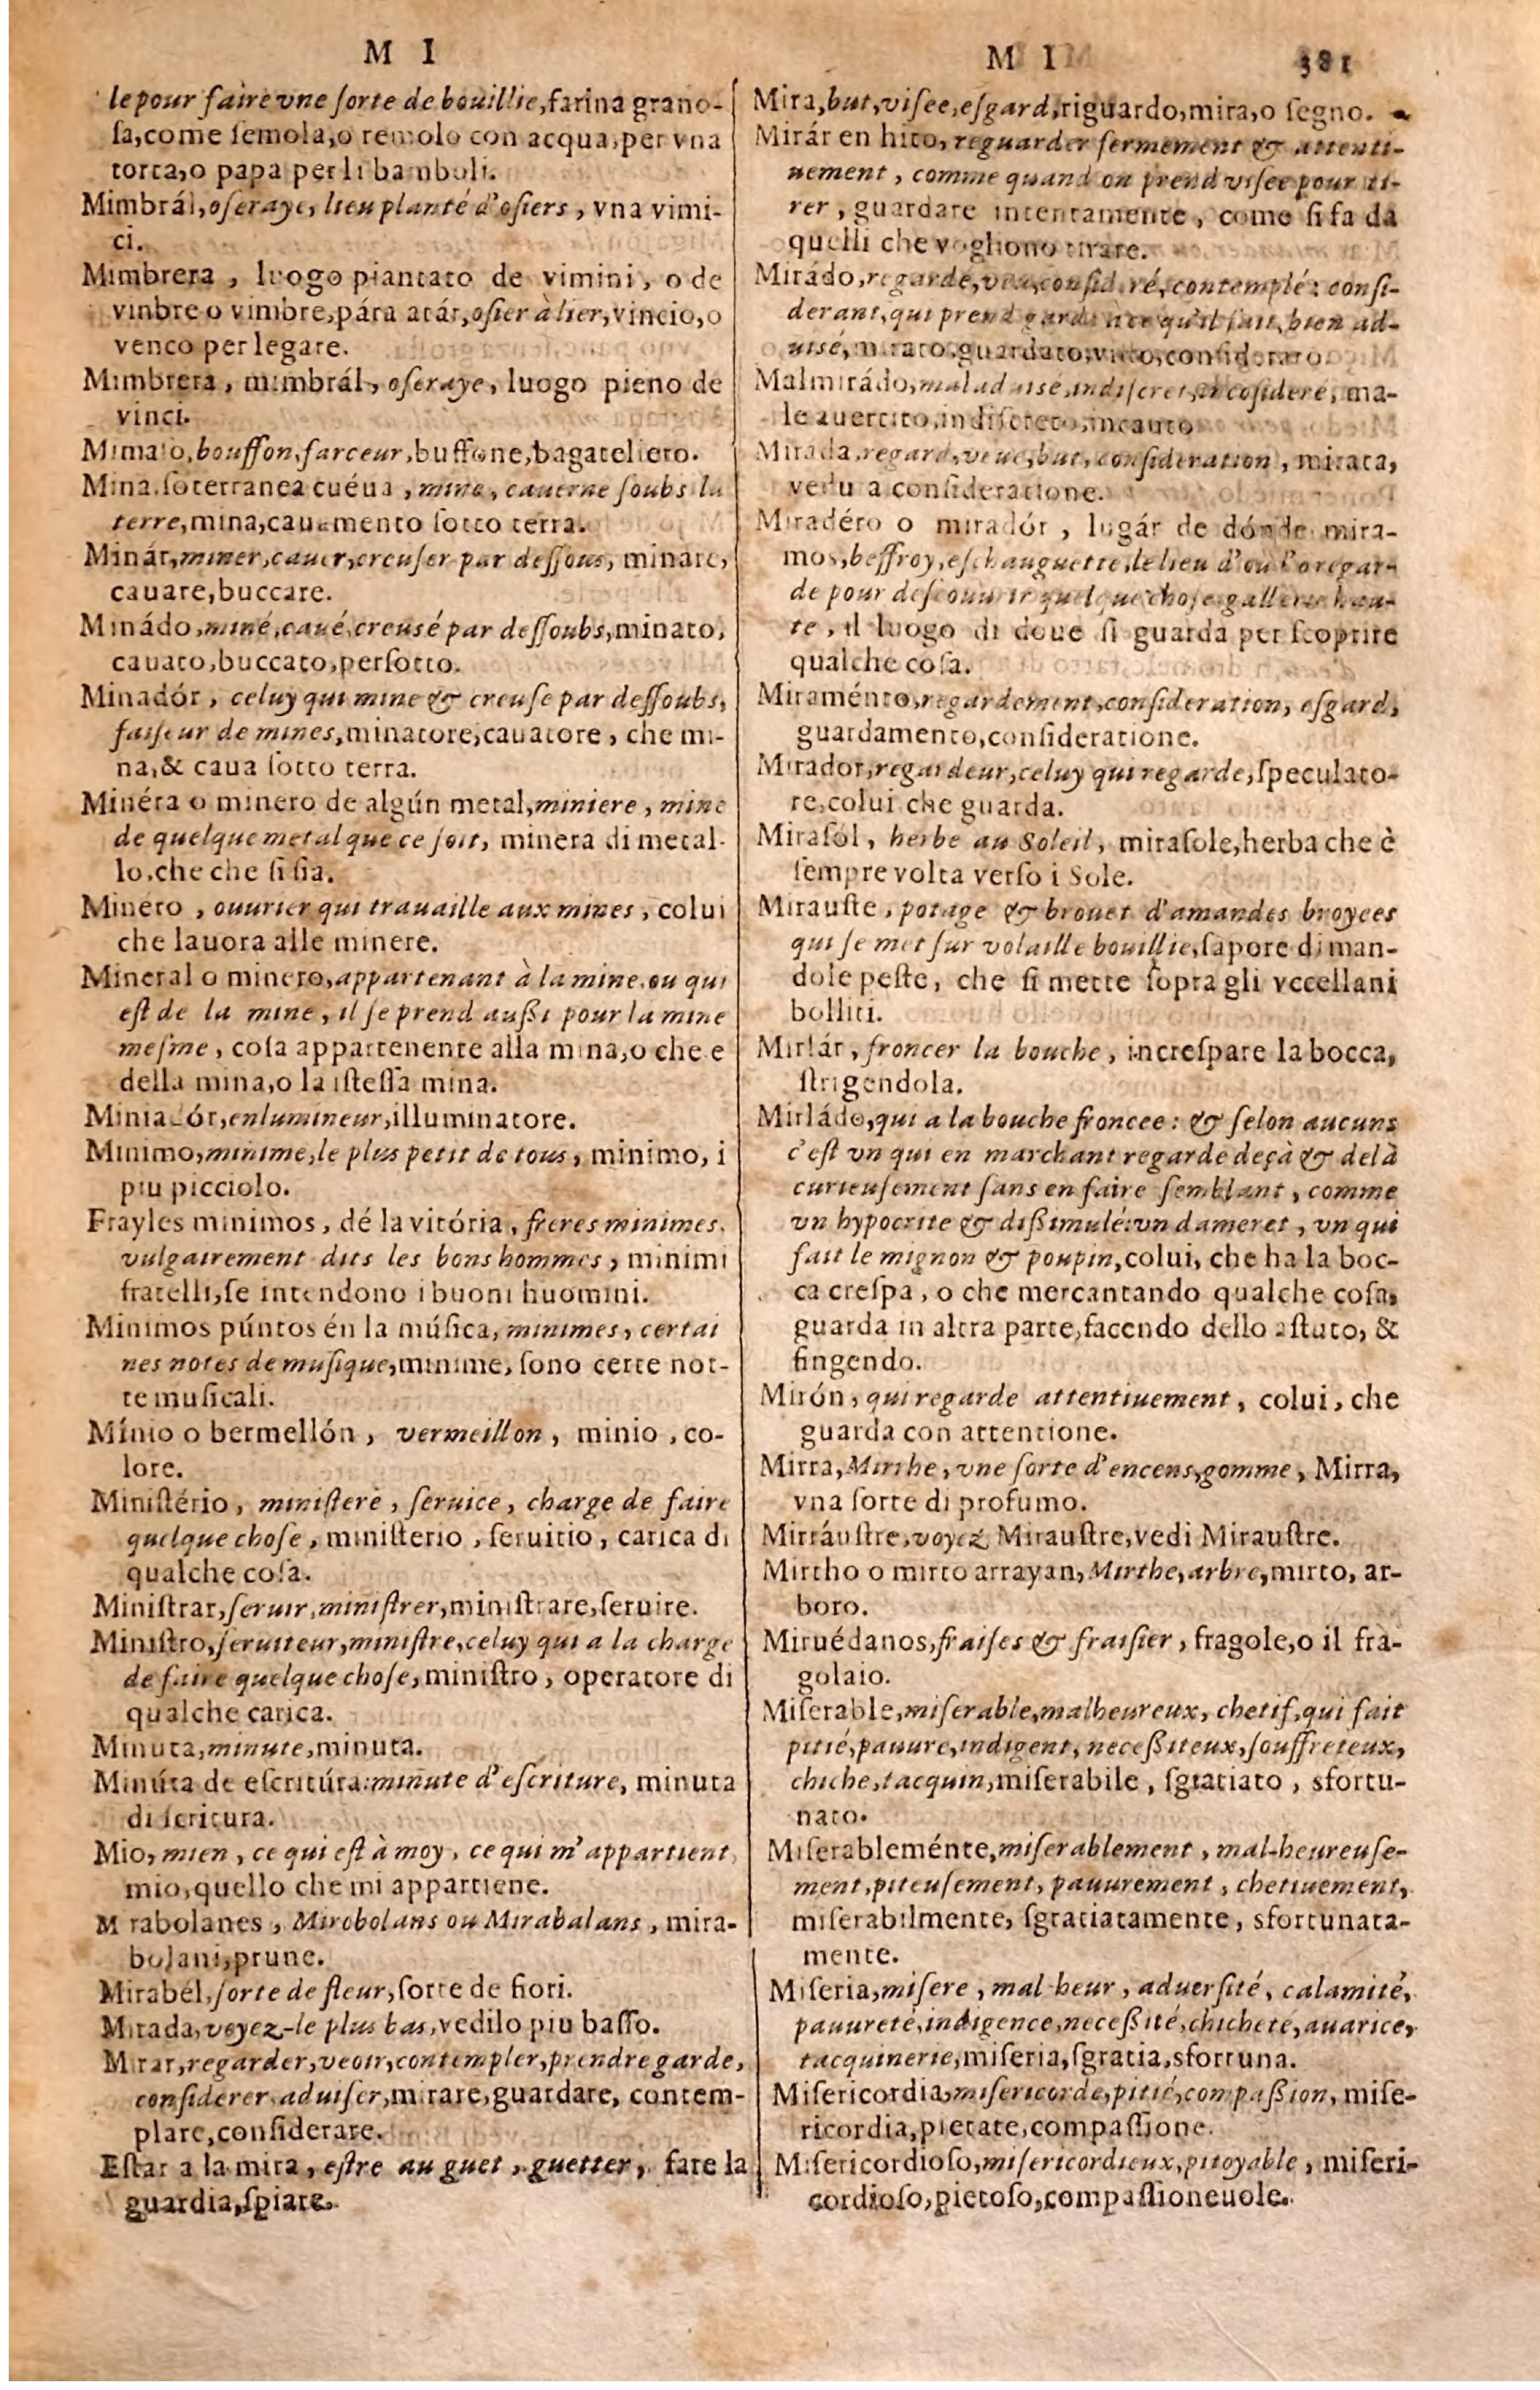 M I
le pour faire vne ſorte de bouillie, farina grano-
ſa, come ſemola, o remolo con acqua, per vna
torta, o papa per li bamboli.
Mimbrál, oſeraye, lieu planté d'oſiers, vna vimi-
ci.
Mimbrera, luogo piantato de vimini, o de
vinbre o vimbre, pára atár, oſier à lier, vincio, o
venco per legare.
Mimbrera, mimbrál, oſeraye, luogo pieno de
vinci.
Mimaio, bouffon, farceur, buffone, bagateliero.
Mina. ſoterranea cuéua, mine, cauerne ſoubs la
terre, mina, cauamento ſotto terra.
Minár, miner, cauer, creuſer par deſſous, minare,
cauare, buccare.
Minádo, miné, caué, creusé par deſſoubs, minato,
cauato, buccato, perſotto.
Minadór, celuy qui mine & creuſe par deſſoubs,
faiſeur de mines, minatore, cauatore, che mi-
na, & caua ſotto terra.
Minéra o minero de algún metal, miniere, mine
de quelque metal que ce ſoit, minera di metal-
lo, che che ſi ſia.
Minero, ouurier qui trauaille aux mines, colui
che lauora alle minere.
Mineral o minero, appartenant à la mine, ou qui
eſt de la mine, il ſe prend außi pour la mine
meſme, coſa appartenente alla mina, o che e
della mina, o la iſteſſa mina.
Miniadór, enlumineur, illuminatore.
Minimo, minime, le plus petit de tous, minimo, i
piu picciolo.
Frayles minimos, dé la vitória, freres minimes.
vulgairement dits les bons hommes, minimi
fratelli, ſe intendono i buoni huomini.
Minimos púntos én la múſica, minimes, certai
nes notes de muſique, minime, ſono certe not-
te muſicali.
Mínio o bermellón, vermeillon, minio, co-
lore.
Miniſtério, miniſtere, ſeruice, charge de faire
quelque choſe, miniſterio, ſeruitio, carica di
qualche coſa.
Miniſtrar, ſeruir, miniſtrer, miniſtrare, ſeruire.
Miniſtro, ſeruiteur, miniſtre, celuy qui a la charge
de faire quelque choſe, miniſtro, operatore di
qualche carica.
Minuta, minute, minuta.
Minúta de eſcritúra: minute d'eſcriture, minuta
di ſcritura.
Mio, mien, ce qui eſt à moy, ce qui m'appartient,
mio, quello che mi appartiene.
M rabolanes, Mirobolans ou Mirabalans, mira-
bolani, prune.
Mirabél, ſorte de fleur, ſorte de fiori.
Mirada, voyez-le plus bas, vedilo piu baſſo.
Mirar, regarder, veoir, contempler, prendre garde,
conſiderer, aduiſer, mirare, guardare, contem-
plare, conſiderare.
Eſtar a la mira, eſtre au guet, guetter, fare la
guardia, ſpiare.
M I 381
Mira, but, viſee, eſgard, riguardo, mira, o ſegno.
Mirár en hito, reguarder fermement & attenti-
uement, comme quand on prend viſee pour ti-
rer, guardare intentamente, come ſi fa da
quelli che vogliono tirare.
Mirádo, regardé, veu, conſideré, contemplé: conſi-
derant, qui prend garde à ce qu'il fait, bien ad-
uisé, mirato, guardato, viſto, conſiderato.
Malmirádo, mal aduisé, indiſcret, incoſideré, ma-
le auertito, indiſcreto, incauto
Mirada, regard, veue, but, conſideration, mirata,
veduta conſideratione.
Miradéro o miradór, lugár de dónde mira-
mos, beffroy, eſchauguette, le lieu d'où l'o regar-
de pour deſcouurir quelque choſe, gallerie hau-
te, il luogo di doue ſi guarda per ſcoprire
qualche coſa.
Miraménto, regardement, conſideration, eſgard,
guardamento, conſideratione.
Mirador, regardeur, celuy qui regarde, ſpeculato-
re, colui che guarda.
Miraſól, herbe au Soleil, miraſole, herba che è
ſempre volta verſo i Sole.
Mirauſte, potage & brouet d'amandes broyees
qui ſe met ſur volaille bouillie, ſapore di man-
dole peſte, che ſi mette ſopra gli vccellani
bolliti.
Mirlár, froncer la bouche, increſpare la bocca,
ſtrigendola.
Mirládo, qui a la bouche froncee: & ſelon aucuns
c'eſt vn qui en marchant regarde deçà & delà
curieuſement ſans en faire ſemblant, comme
vn hypocrite & dißimulé: vn dameret, vn qui
fait le mignon & poupin, colui, che ha la boc-
ca creſpa, o che mercantando qualche coſa,
guarda in altra parte, facendo dello aſtuto, &
fingendo.
Mirón, qui regarde attentiuement, colui, che
guarda con attentione.
Mirra, Mirrhe, vne ſorte d'encens, gomme, Mirra,
vna ſorte di profumo.
Mirráuſtre, voyez Mirauſtre, vedi Mirauſtre.
Mirtho o mirto arrayan, Mirthe, arbre, mirto, ar-
boro.
Miruédanos, fraiſes & fraiſier, fragole, o il fra-
golaio.
Miſerable, miſerable, malheureux, chetif, qui fait
pitié, pauure, indigent, neceßiteux, ſouffreteux,
chiche, tacquin, miſerabile, ſgratiato, sfortu-
nato.
Miſerableménte, miſerablement, mal-heureuſe-
ment, piteuſement, pauurement, chetiuement,
miſerabilmente, ſgratiatamente, sfortunata-
mente.
Miſeria, miſere, mal-heur, aduerſité, calamité,
pauureté, indigence, neceßité, chicheté, auarice,
tacquinerie, miſeria, ſgratia, sfortuna.
Miſericordia, miſericorde, pitié, compaßion, miſe-
ricordia, pietate, compaſſione.
Miſericordioſo, miſericordieux, pitoyable, miſeri-
cordioſo, pietoſo, compaſſioneuole.